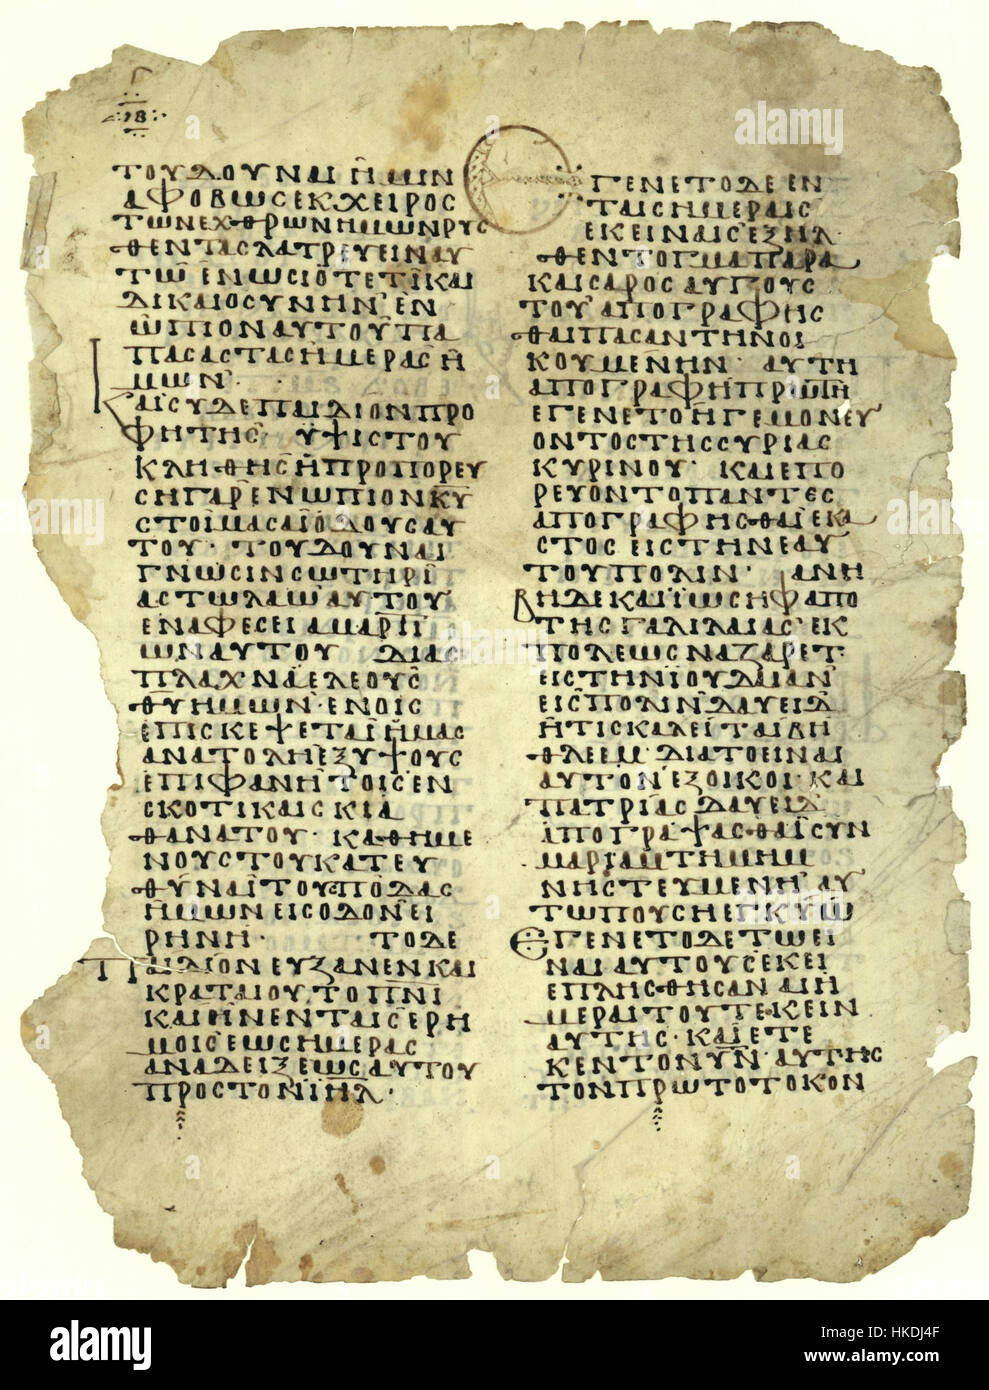 ΤΟΥΔΟΥΝΑΙΗΜΙΝ
ΑΦΟΒΩΣΕΚΧΕΙΡΟΣ
ΤΩΝΕΧΘΡΩΝΗΜΩΝΡΥΣ
ΘΕΝΤΑΣΛΑΤΡΕΥΕΙΝΑΥ
ΤΩ ΕΝΟΣΙΟΤΕΤΙΚΑΙ
ΔΙΚΑΙΟΣΥΝΗΝ ΕΝ
ΩΠΙΟΝΑΥΤΟΥΠΑ
ΠΑΣΑΣΤΑΣΗΜΕΡΑΣΗ
ΜΩΝ·
ΚΑΙΣΥΔΕΠΑΙΔΙΟΝΠΡΟ
ΦΗΤΗΣ ΥΨΙΣΤΟΥ
ΚΛΗΘΗΣΗΠΡΟΠΟΡΕΥ
ΣΗΓΑΡΕΝΩΠΙΟΝΚΥ
ΕΤΟΙΜΑΣΑΙΟΔΟΥΣΑΥ
ΤΟΥ· ΤΟΥΔΟΥΝΑΙ
ΓΝΩΣΙΝΣΩΤΗΡΙ
ΑΣΤΩΛΑΩΑΥΤΟΥ
ΕΝΑΦΕΣΕΙΑΜΑΡΤΙ
ΩΝΑΥΤΟΥ ΔΙΑΣ
ΠΛΑΧΝΑΕΛΕΟΥΣ
ΘΥΗΜΩΝ·ΕΝΟΙΣ
ΕΠΙΣΚΕΨΕΤΑΙΗΜΑΣ
ΑΝΑΤΟΛΗΕΞΥΨΟΥΣ
ΕΠΙΦΑΝΗΤΟΙΣΕΝ
ΣΚΟΤΙΚΑΙΣΚΙΑ
ΘΑΝΑΤΟΥ· ΚΑΘΗΜΕ
ΝΟΥΣΤΟΥΚΑΤΕΥ
ΘΥΝΑΙΤΟΥΣΠΟΔΑΣ
ΗΜΩΝΕΙΣΟΔΟΝΕΙ
ΡΗΝΗ· ΤΟΔΕ
ΠΑΙΔΙΟΝΕΥΞΑΝΕΝΚΑΙ
ΚΡΑΤΑΙΟΥΤΟΠΝΙ
ΚΑΙΗΝΕΝΤΑΙΣΕΡΗ
ΜΟΙΣΕΩΣΗΜΕΡΑΣ
ΑΝΑΔΕΙΞΕΩΣΑΥΤΟΥ
ΠΡΟΣΤΟΝΙΗΛ·
ΓΕΝΕΤΟΔΕΕΝ
ΤΑΙΣΗΜΕΡΑΙΣ
ΕΚΕΙΝΑΙΣΕΞΗΛ
ΘΕΝΤΟΓΜΑΠΑΡΑ
ΚΑΙΣΑΡΟΣΑΥΓΟΥΣ
ΤΟΥΑΠΟΓΡΑΦΗΣ
ΘΑΙΠΑΣΑΝΤΗΝΟΙ
ΚΟΥΜΕΝΗΝ· ΑΥΤΗ
ΑΠΟΓΡΑΦΗΠΡΩΤΗ
ΕΓΕΝΕΤΟΗΓΕΜΟΝΕΥ
ΟΝΤΟΣΤΗΣΣΥΡΙΑΣ
ΚΥΡΙΝΟΥ· ΚΑΙΕΠΟ
ΡΕΥΟΝΤΟΠΑΝΤΕΣ
ΑΠΟΓΡΑΦΗΣΘΑΙΕΚΑ
ΣΤΟΣΕΙΣΤΗΝΕΑΥ
ΤΟΥΠΟΛΙΝ· ΑΝΗ
ΒΗΔΕΚΑΙΙΩΣΗΦΑΠΟ
ΤΗΣΓΑΛΙΛΑΙΑΣΕΚ
ΠΟΛΕΩΣΝΑΖΑΡΕΤ·
ΕΙΣΤΗΝΙΟΥΔΑΙΑΝ
ΕΙΣΠΟΛΙΝΔΑΥΕΙΔ
ΗΤΙΣΚΑΛΕΙΤΑΙΒΗ
ΘΛΕΕΜ·ΔΙΑΤΟΕΙΝΑΙ
ΑΥΤΟΝΕΞΟΙΚΟΙ·ΚΑΙ
ΠΑΤΡΙΑΣΔΑΥΕΙΔ
ΑΠΟΓΡΑΨΑΣΘΑΙΣΥΝ
ΜΑΡΙΑΜΤΗΜΗΜ
ΝΗΣΤΕΥΜΕΝΗΑΥ
ΤΩΠΟΥΣΗΕΓΚΥΩ
ΕΓΕΝΕΤΟΔΕΤΩΕΙ
ΝΑΙΑΥΤΟΥΣΕΚΕΙ
ΕΠΛΗΣΘΗΣΑΝΑΙΗ
ΜΕΡΑΙΤΟΥΤΕΚΕΙΝ
ΑΥΤΗΣ·ΚΑΙΕΤΕ
ΚΕΝΤΟΝΥΝ·ΑΥΤΗΣ
ΤΟΝΠΡΩΤΟΤΟΚΟΝ
alamy
Image ID: HKDJ4F
www.alamy.com